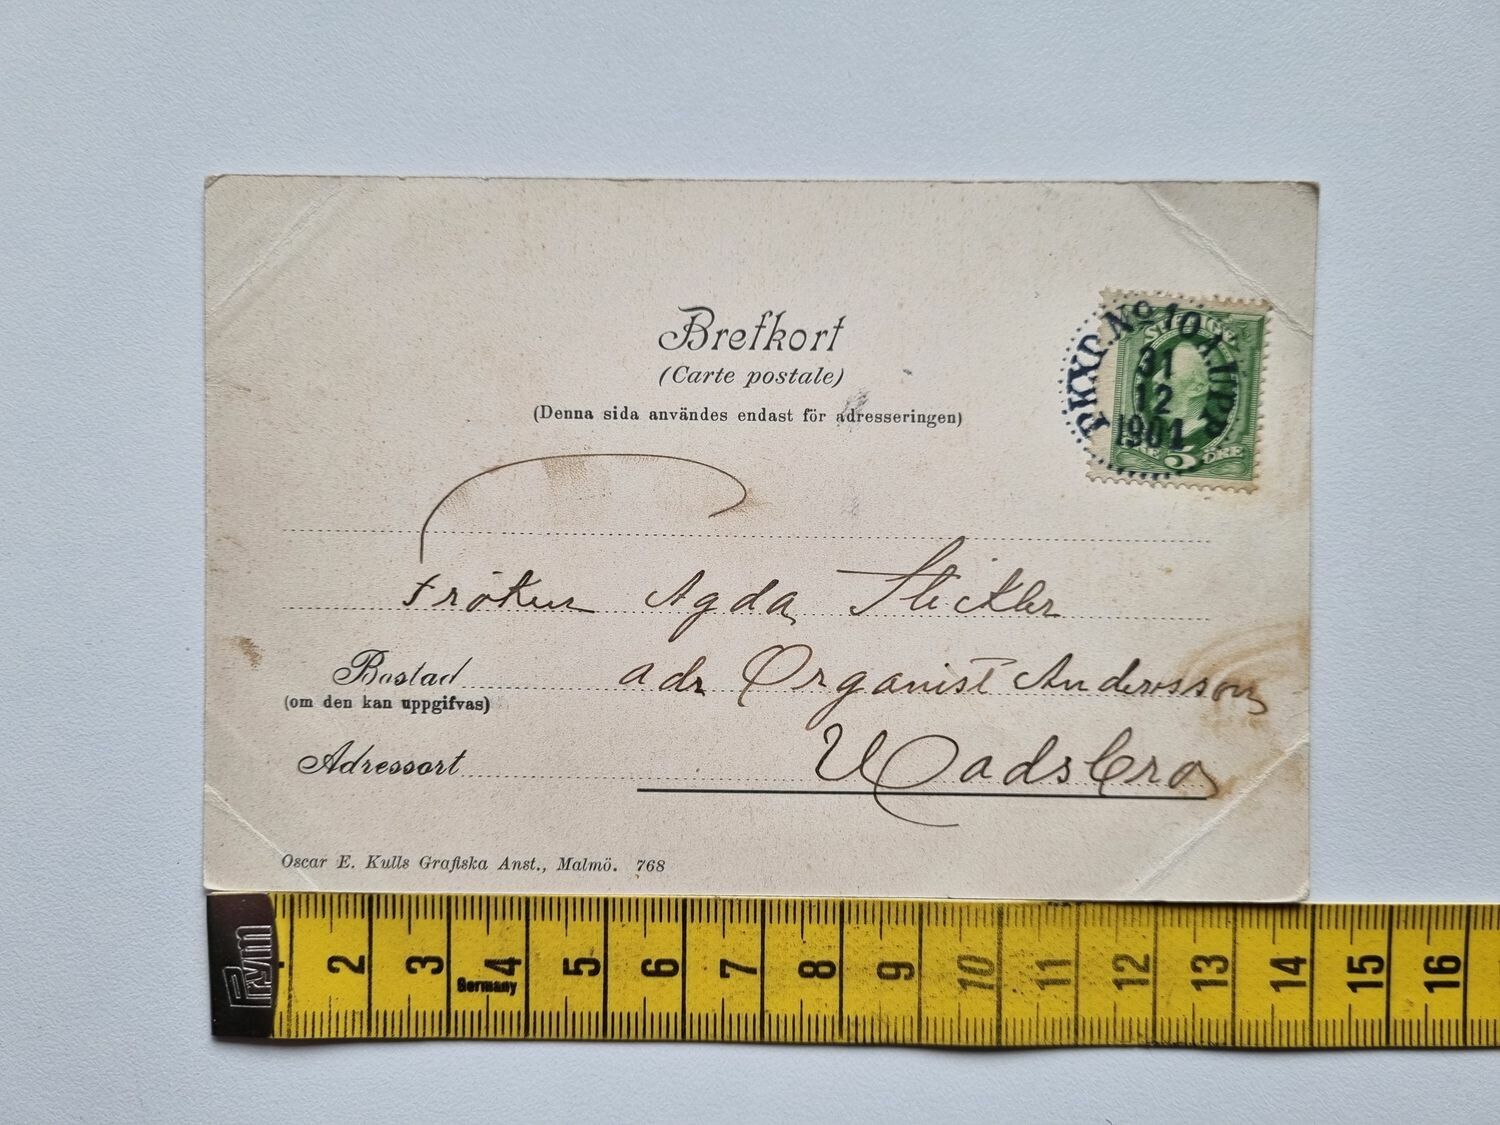 Brefkort
(Carte postale)
(Denna sida användes endast för adresseringen)
PKXP. No 10 A. UPP
31
12
1901
SVERIGE
5 ÖRE
Fröken Agda Stickler
adr Organist Andersson
Bostad
(om den kan uppgifvas)
Wadsbro
Adressort
Oscar E. Kulls Grafiska Anst., Malmö. 768
Prym
2 3 4 5 6 7 8 9 10 11 12 13 14 15 16
Germany